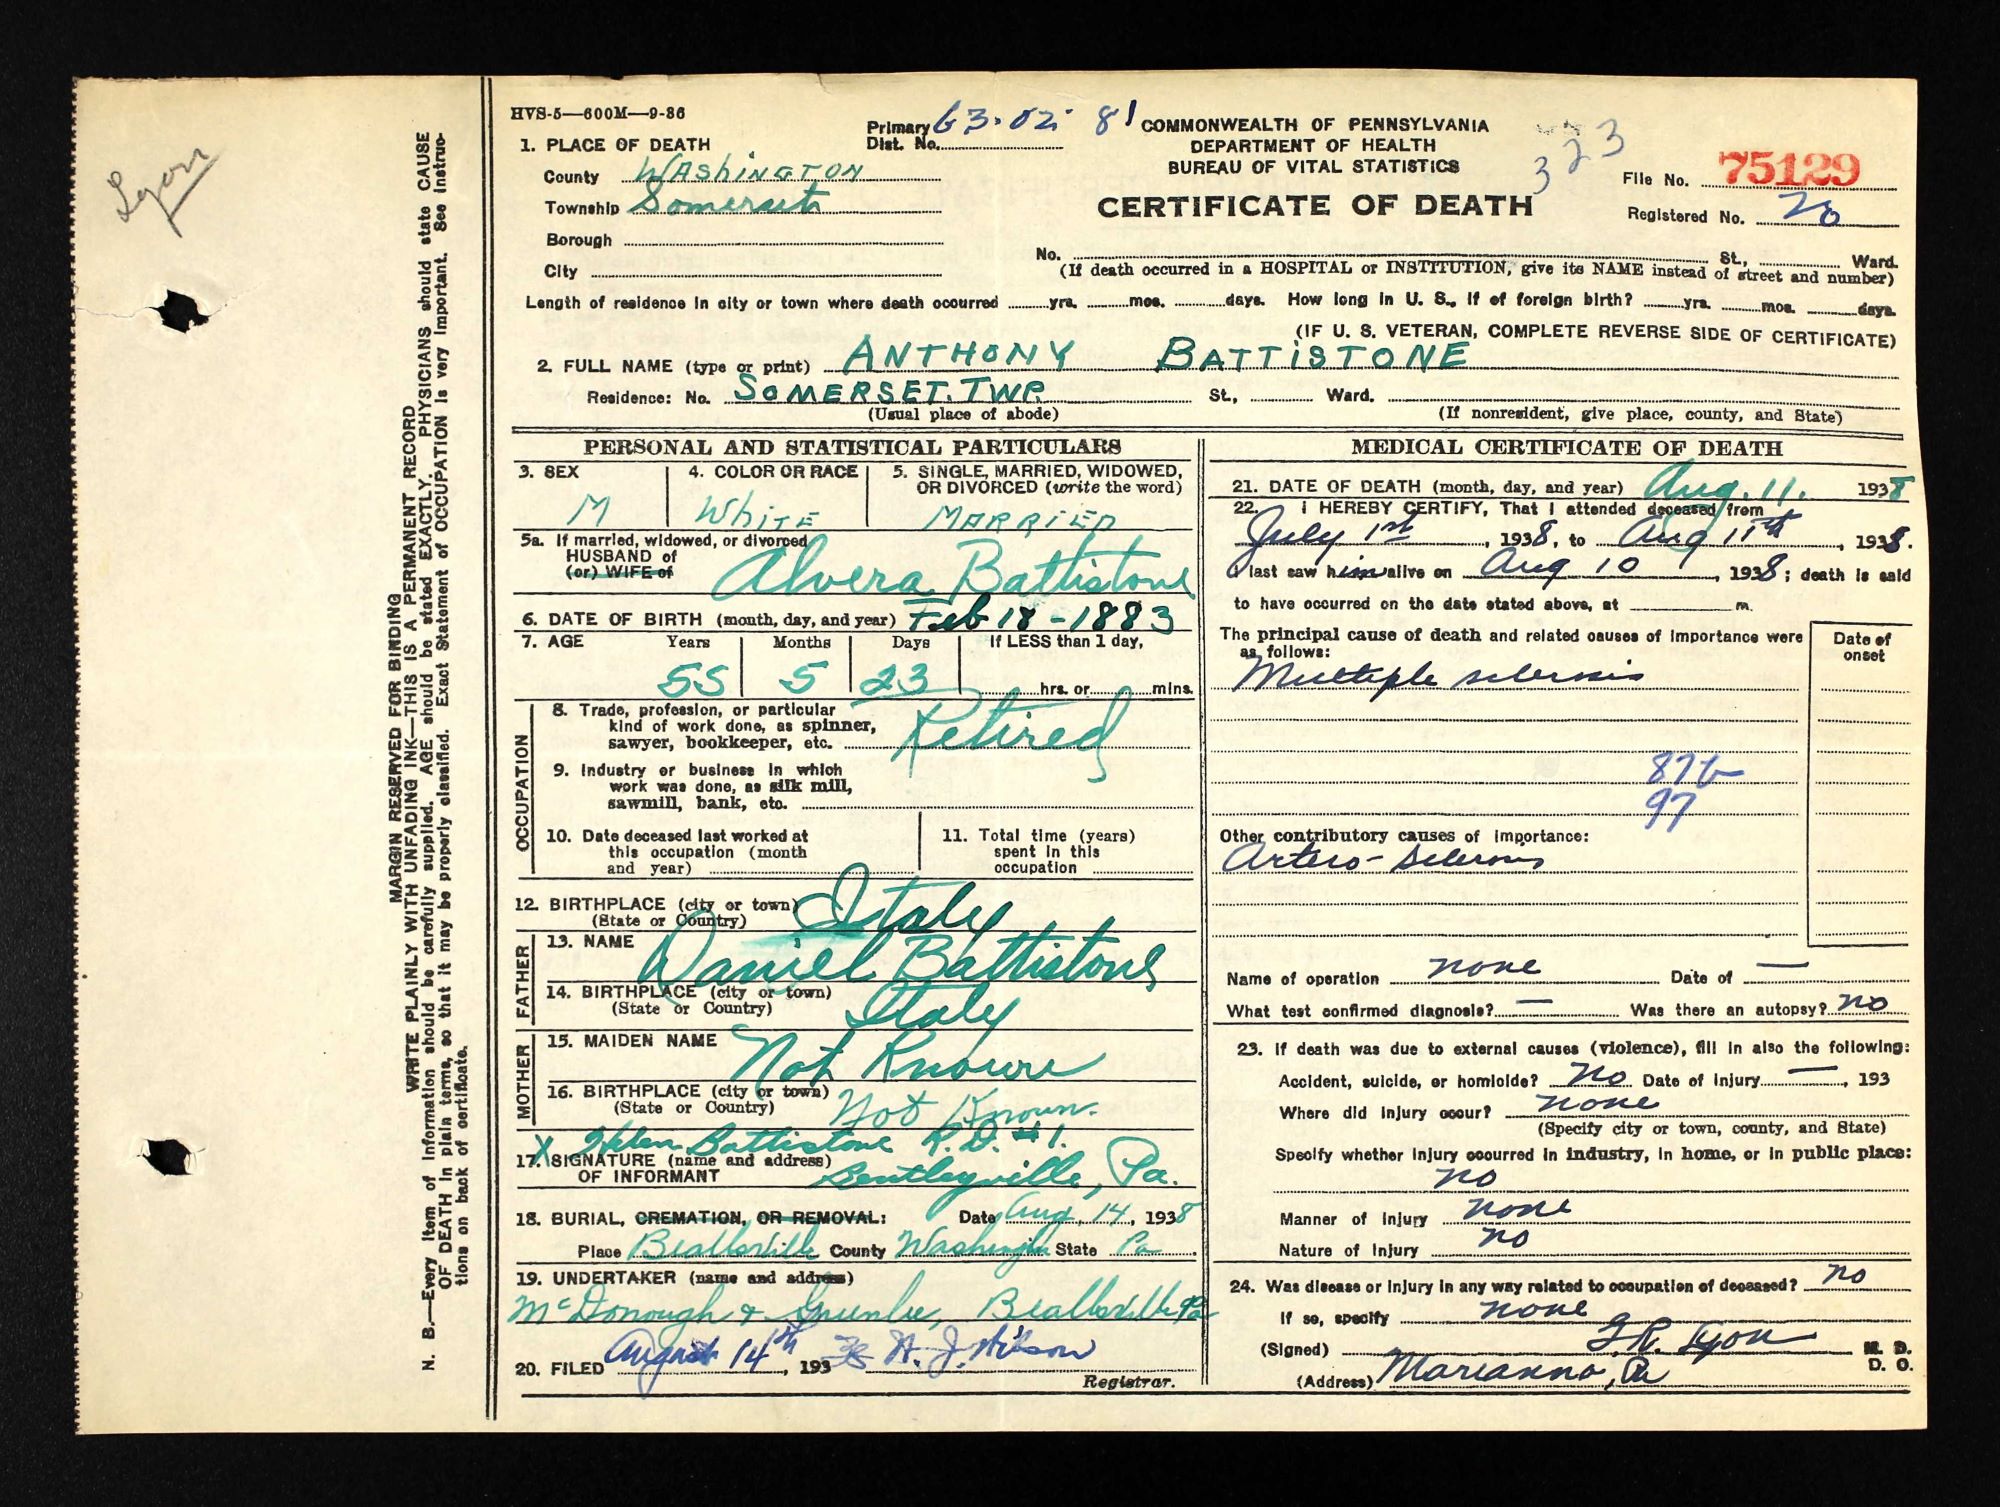 Lyon
MARGIN RESERVED FOR BINDING
WRITE PLAINLY WITH UNFADING INK—THIS IS A PERMANENT RECORD
N. B.—Every item of information should be carefully supplied. AGE should be stated EXACTLY. PHYSICIANS should state CAUSE
OF DEATH in plain terms, so that it may be properly classified. Exact Statement of OCCUPATION is very important. See instruc-
tions on back of certificate.
HVS-5—600M—9-36
Primary Dist. No. 63-02-81
COMMONWEALTH OF PENNSYLVANIA
DEPARTMENT OF HEALTH
BUREAU OF VITAL STATISTICS
CERTIFICATE OF DEATH
323
File No. 75129
Registered No. 20
1. PLACE OF DEATH
County WASHINGTON
Township Somerset
Borough
City
No. St., Ward.
(If death occurred in a HOSPITAL or INSTITUTION, give its NAME instead of street and number)
Length of residence in city or town where death occurred yrs. mos. days. How long in U. S., if of foreign birth? yrs. mos. days.
(IF U. S. VETERAN, COMPLETE REVERSE SIDE OF CERTIFICATE)
2. FULL NAME (type or print) ANTHONY BATTISTONE
Residence: No. SOMERSET. TWP. St., Ward.
(Usual place of abode) (If nonresident, give place, county, and State)
PERSONAL AND STATISTICAL PARTICULARS
3. SEX
M
4. COLOR OR RACE
WhiTE
5. SINGLE, MARRIED, WIDOWED,
OR DIVORCED (write the word)
MARRIED
5a. If married, widowed, or divorced
HUSBAND of
(or) WIFE of
Alvera Battistone
6. DATE OF BIRTH (month, day, and year) Feb 18-1883
7. AGE Years Months Days If LESS than 1 day,
55 5 23 hrs. or mins.
OCCUPATION
8. Trade, profession, or particular
kind of work done, as spinner,
sawyer, bookkeeper, etc. Retired
9. Industry or business in which
work was done, as silk mill,
sawmill, bank, etc.
10. Date deceased last worked at
this occupation (month
and year)
11. Total time (years)
spent in this
occupation
12. BIRTHPLACE (city or town)
(State or Country) Italy
FATHER
13. NAME Daniel Battistone
14. BIRTHPLACE (city or town)
(State or Country) Italy
MOTHER
15. MAIDEN NAME Not Known
16. BIRTHPLACE (city or town)
(State or Country) Not Known.
X Helen Battistone R.D. #1.
17. SIGNATURE (name and address)
OF INFORMANT Bentleyville, Pa.
18. BURIAL, CREMATION, OR REMOVAL: Date Aug. 14, 1938
Place Beallsville County Washington State Pa
19. UNDERTAKER (name and address)
McDonough & Greenlee, Beallsville Pa
20. FILED August 14th, 1938 H. J. Wilson
Registrar.
MEDICAL CERTIFICATE OF DEATH
21. DATE OF DEATH (month, day, and year) Aug. 11. 1938
22. I HEREBY CERTIFY, That I attended deceased from
July 1st, 1938, to Aug 11th, 1938.
I last saw him alive on Aug 10, 1938; death is said
to have occurred on the date stated above, at m.
The principal cause of death and related causes of importance were
as follows:
Date of
onset
Multiple sclerosis
87b
97
Other contributory causes of importance:
Artero-sclerosis
Name of operation none Date of —
What test confirmed diagnosis? — Was there an autopsy? no
23. If death was due to external causes (violence), fill in also the following:
Accident, suicide, or homicide? No Date of injury —, 193
Where did injury occur? none
(Specify city or town, county, and State)
Specify whether injury occurred in industry, in home, or in public place:
no
Manner of injury none
Nature of injury no
24. Was disease or injury in any way related to occupation of deceased? no
If so, specify none
(Signed) Lyon M. D.
D. O.
(Address) Marianna, Pa